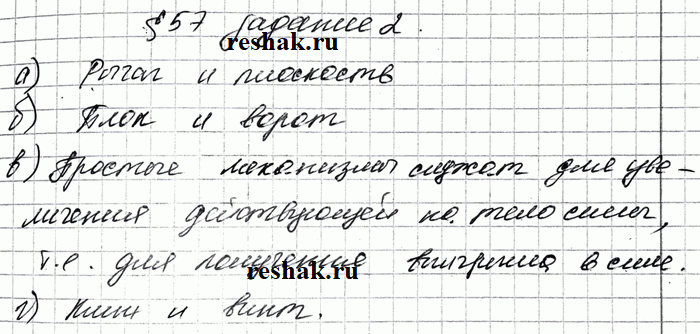 §57 Задание 2.
reshak.ru
а) Рычаг и плоскость
б) Блок и ворот
в) Простые механизмы служат для уве-
личения действующей на тело силы,
т.е. для получения выигрыша в силе.
reshak.ru
г) Клин и винт.